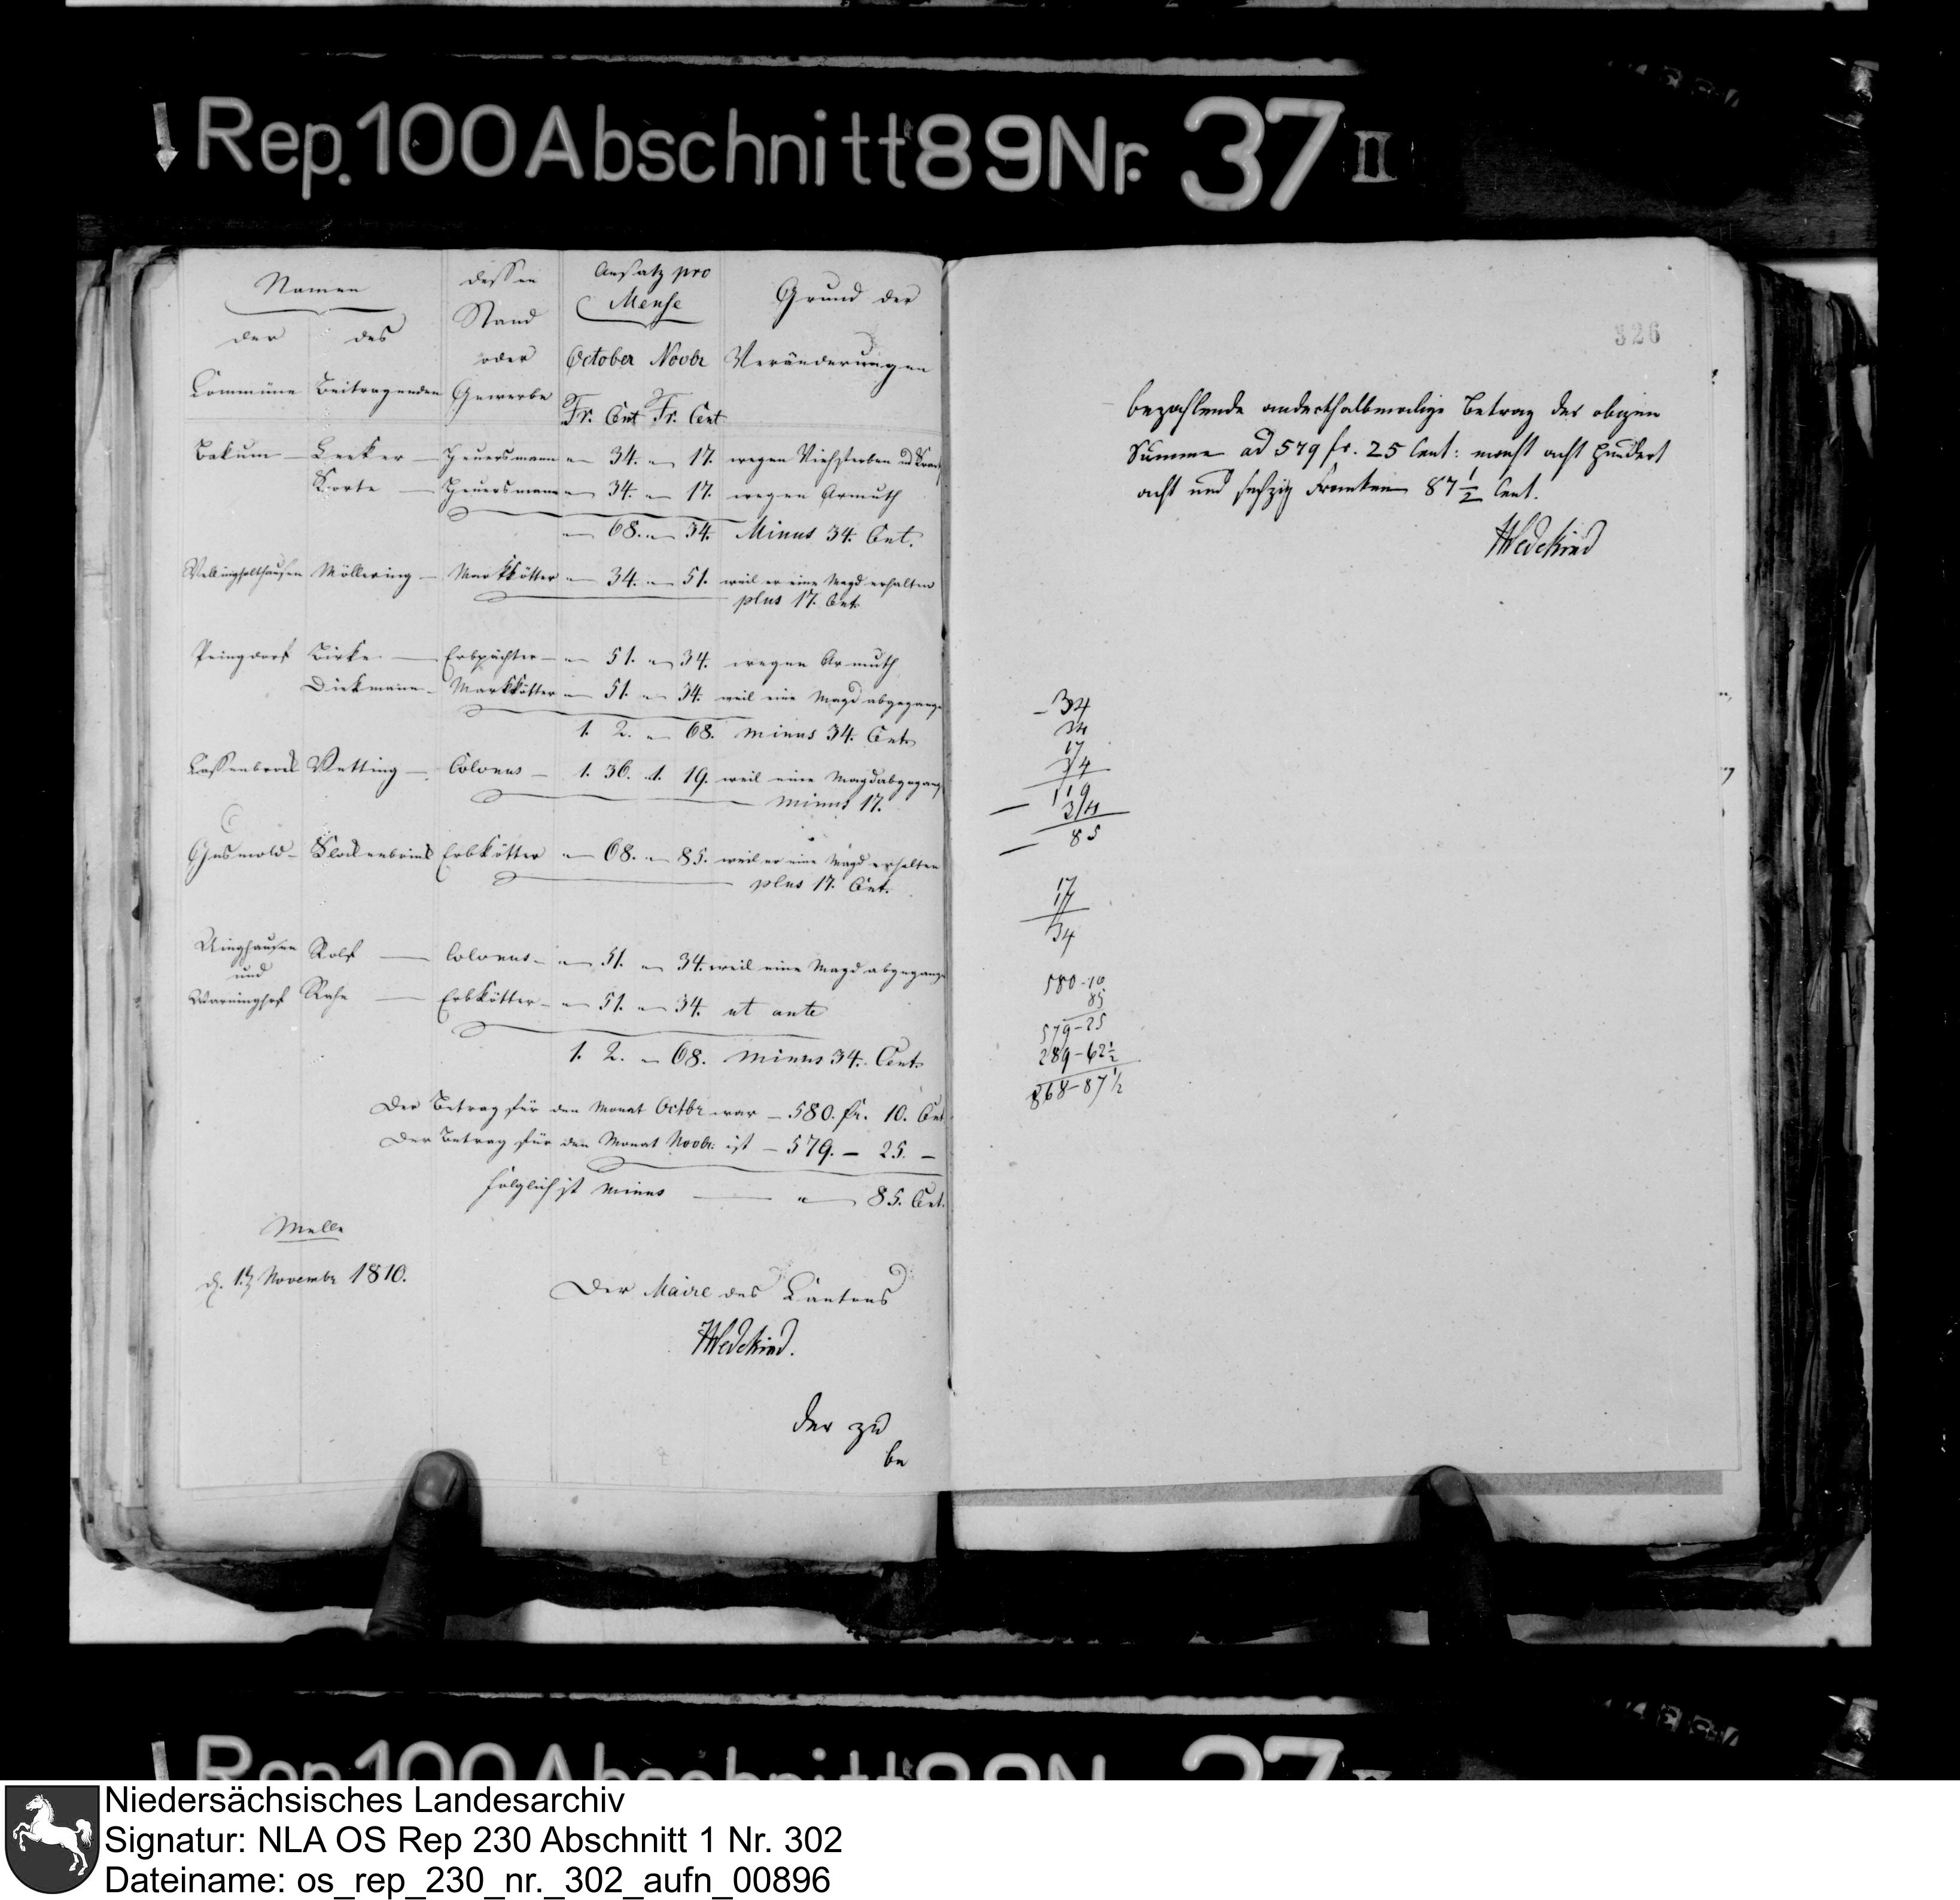 Rep. 100 Abschnitt 89 Nr. 37 II
Namen
der des
Commüne Beitragenden
dessen
Stand
oder
Gewerbe
Ansatz pro
Mense
October Novbr
Fr. Cent Fr. Cent
Grund der
Veränderungen
Bakum — Leeker — Heuersmann „ 34. „ 17. wegen Viehsterben
Korte — Heuersmann „ 34. „ 17. wegen Armuth
„ 68. „ 34. Minus 34. Cent.
Wellingholthausen Möllering — Markkötter „ 34. „ 51. weil er eine Magd erhalten
plus 17. Cent.
Peingdorf Birke — Erbpächter — „ 51. „ 34. wegen Armuth
Diekmann — Markkötter „ 51. „ 34. weil eine Magd abgegange
1. 2. „ 68. minus 34. Cent
Vetting — Colonus — 1. 36. 1. 19. weil eine Magd abgegang
minus 17.
Gesmold — Erbkötter „ 68. „ 85. weil er eine Magd erhalten
plus 17. Cent.
Uinghausen Rolf — Colonus — „ 51. „ 34. weil eine Magd abgegange
und
Warringhof Rahe — Erbkötter — „ 51. „ 34. ut ante
1. 2. „ 68. minus 34. Cent
Der Betrag für den Monat Octbr war — 580. fr. 10. Cent
Der Betrag für den Monat Novbr. ist — 579. — 25. —
folglich ist minus — „ 85. Cent.
Melle
d. 1t Novembr 1810.
Der Maire des Cantons
Wedekind.
der zu
be
326
bezahlende anderthalbmalige Betrag der obigen
Summe ad 579 fr. 25 Cent: macht acht hundert
acht und sechzig Franken 87 1/2 Cent.
Wedekind
34
34
17
34
119
34
85
17
17
34
580 - 10
85
579 - 25
289 - 62 1/2
868 - 87 1/2
Niedersächsisches Landesarchiv
Signatur: NLA OS Rep 230 Abschnitt 1 Nr. 302
Dateiname: os_rep_230_nr._302_aufn_00896